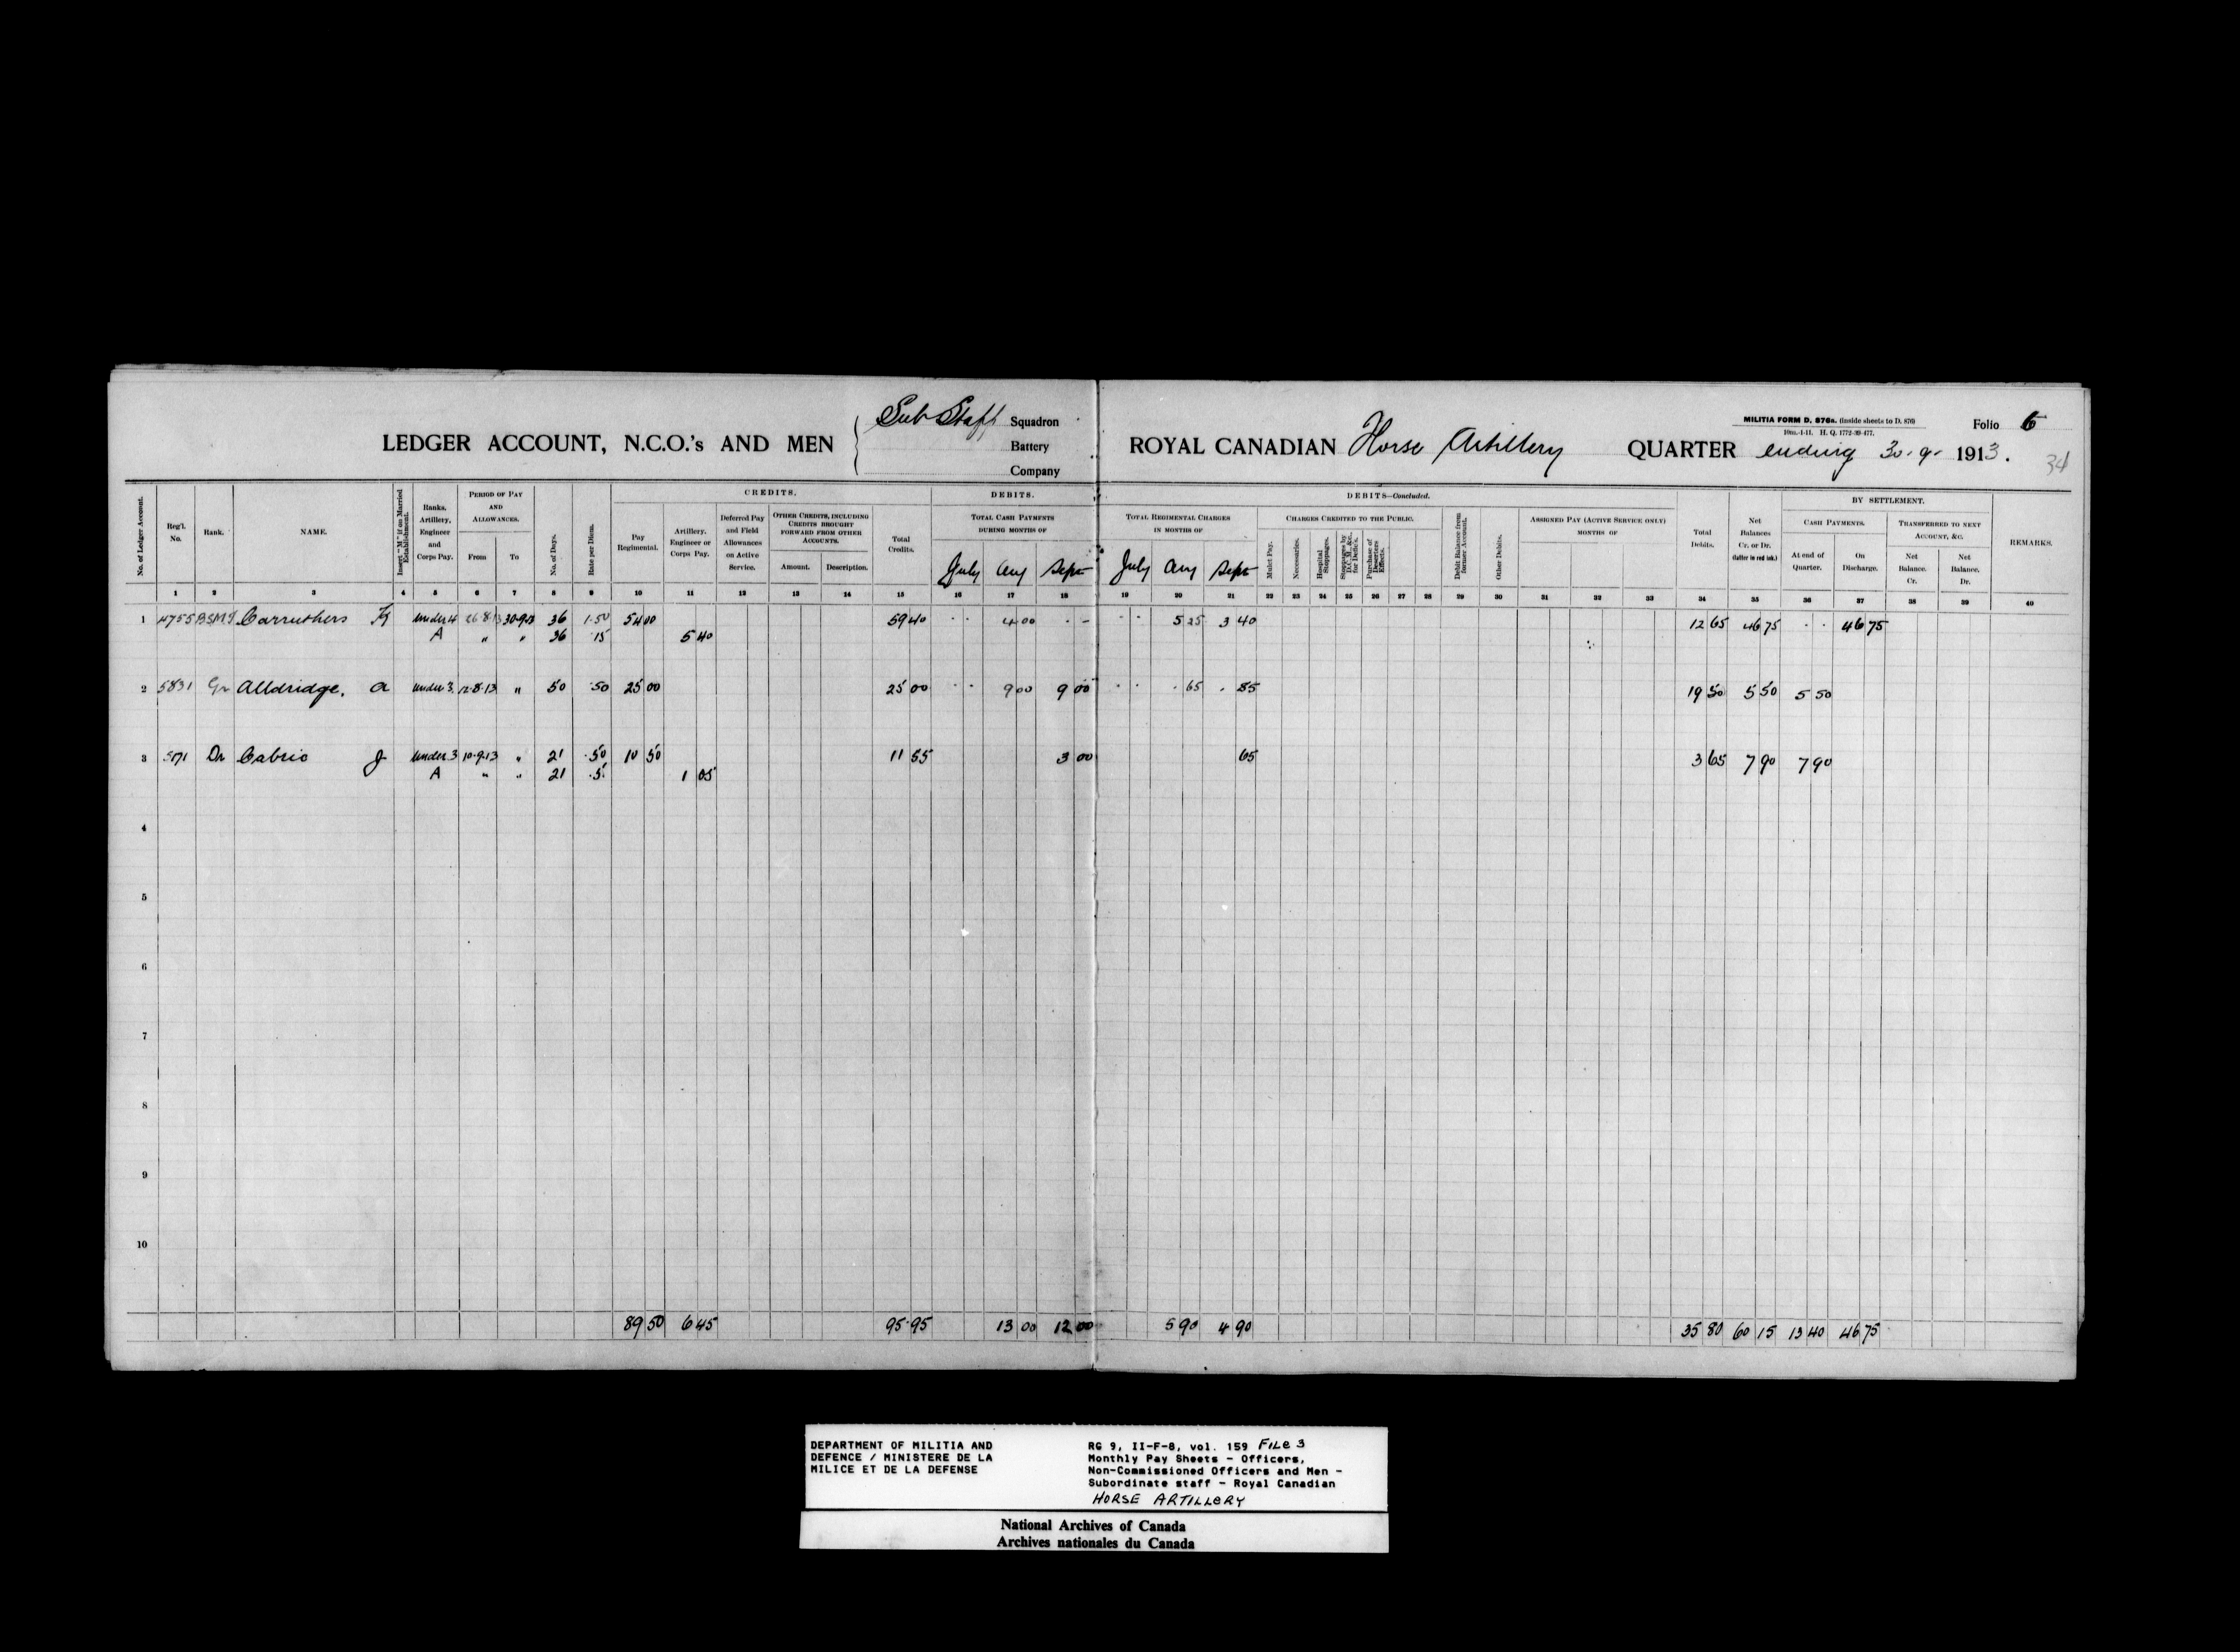 Sub Staff Squadron
LEDGER ACCOUNT, N.C.O.'s AND MEN
Battery
Company
ROYAL CANADIAN Horse Artillery QUARTER ending 30.9. 1913.
MILITIA FORM D. 876a. (inside sheets to D. 876)
10m.-1-11. H. Q. 1772-39-477.
Folio 6
34
No. of Ledger Account.
Reg'l. No.
Rank.
NAME.
Insert "M" if on Married Establishment.
Ranks. Artillery, Engineer and Corps Pay.
PERIOD OF PAY AND ALLOWANCES.
From To
No. of Days.
Rate per Diem.
CREDITS.
Pay Regimental.
Artillery, Engineer or Corps Pay.
Deferred Pay and Field Allowances on Active Service.
OTHER CREDITS, INCLUDING CREDITS BROUGHT FORWARD FROM OTHER ACCOUNTS.
Amount. Description.
Total Credits.
DEBITS.
TOTAL CASH PAYMENTS DURING MONTHS OF
July Aug Sept
DEBITS—Concluded.
TOTAL REGIMENTAL CHARGES IN MONTHS OF
July Aug Sept
CHARGES CREDITED TO THE PUBLIC.
Mulct Pay.
Necessaries.
Hospital Stoppages.
Purchase of Deserters Effects.
Debit Balance from former Account.
Other Debits.
ASSIGNED PAY (ACTIVE SERVICE ONLY) MONTHS OF
Total Debits.
Net Balances Cr. or Dr. (latter in red ink.)
BY SETTLEMENT.
CASH PAYMENTS.
At end of Quarter. On Discharge.
TRANSFERRED TO NEXT ACCOUNT, &C.
Net Balance. Cr. Net Balance. Dr.
REMARKS.
1 2 3 4 5 6 7 8 9 10 11 12 13 14 15 16 17 18 19 20 21 22 23 24 25 26 27 28 29 30 31 32 33 34 35 36 37 38 39 40
1 4755 Carruthers K under 4 26.8.13 30.9.13 36 1.50 54 00 59 40 4 00 5 25 3 40 12 65 46 75 46 75
A " " 36 15 5 40
2 5831 Gr Alldridge, A under 3 12.8.13 " 50 .50 25 00 25 00 9 00 9 00 .65 .85 19 50 5 50 5 50
3 Dr Cabrio J under 3 10.9.13 " 21 .50 10 50 11 55 3 00 65 3 65 7 90 7 90
A " " 21 .5 1 05
4
5
6
7
8
9
10
89 50 6 45 95.95 13 00 12 00 5 90 4 90 35 80 60 15 13 40 46 75
DEPARTMENT OF MILITIA AND
DEFENCE / MINISTERE DE LA
MILICE ET DE LA DEFENSE
RG 9, II-F-8, vol. 159 FILE 3
Monthly Pay Sheets - Officers,
Non-Commissioned Officers and Men -
Subordinate staff - Royal Canadian
HORSE ARTILLERY
National Archives of Canada
Archives nationales du Canada